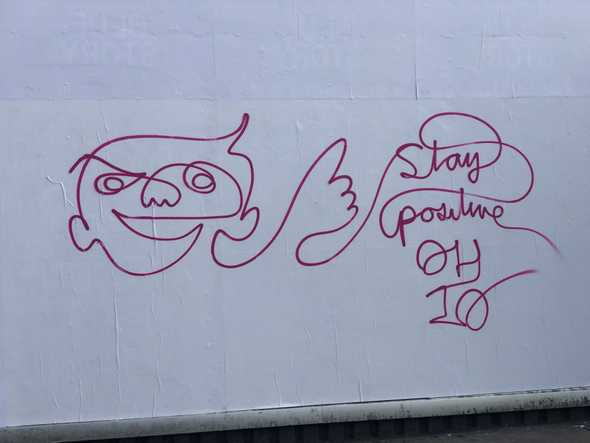 Stay
positive
OH
IO